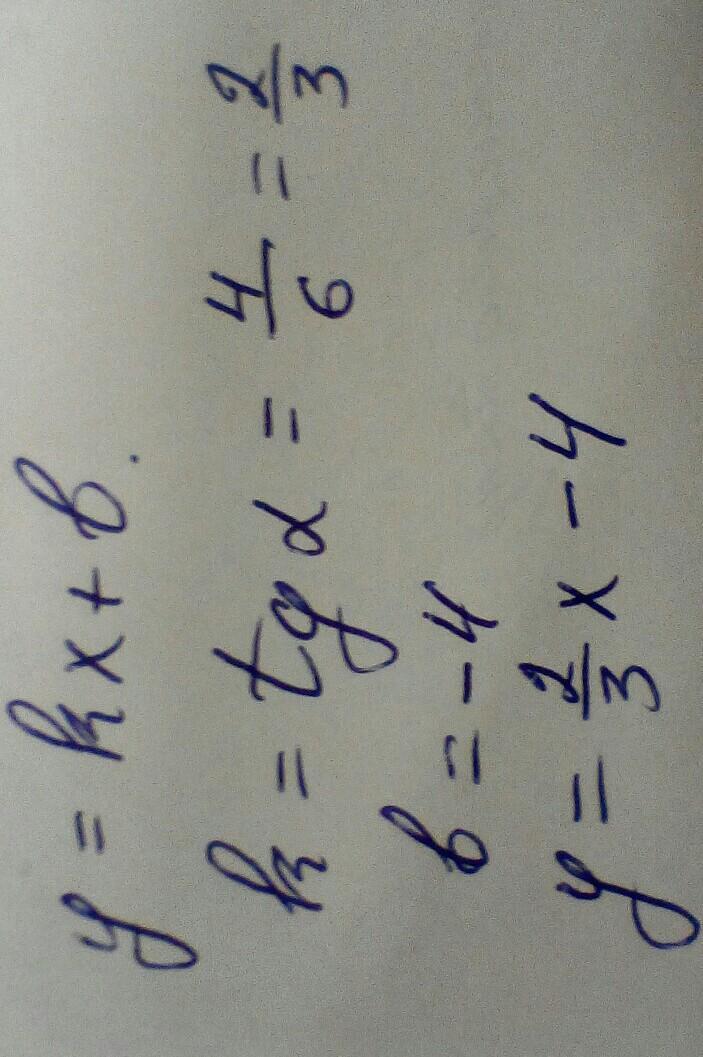 y = kx + b.
k = tg α = 4/6 = 2/3
b = -4
y = 2/3 x - 4